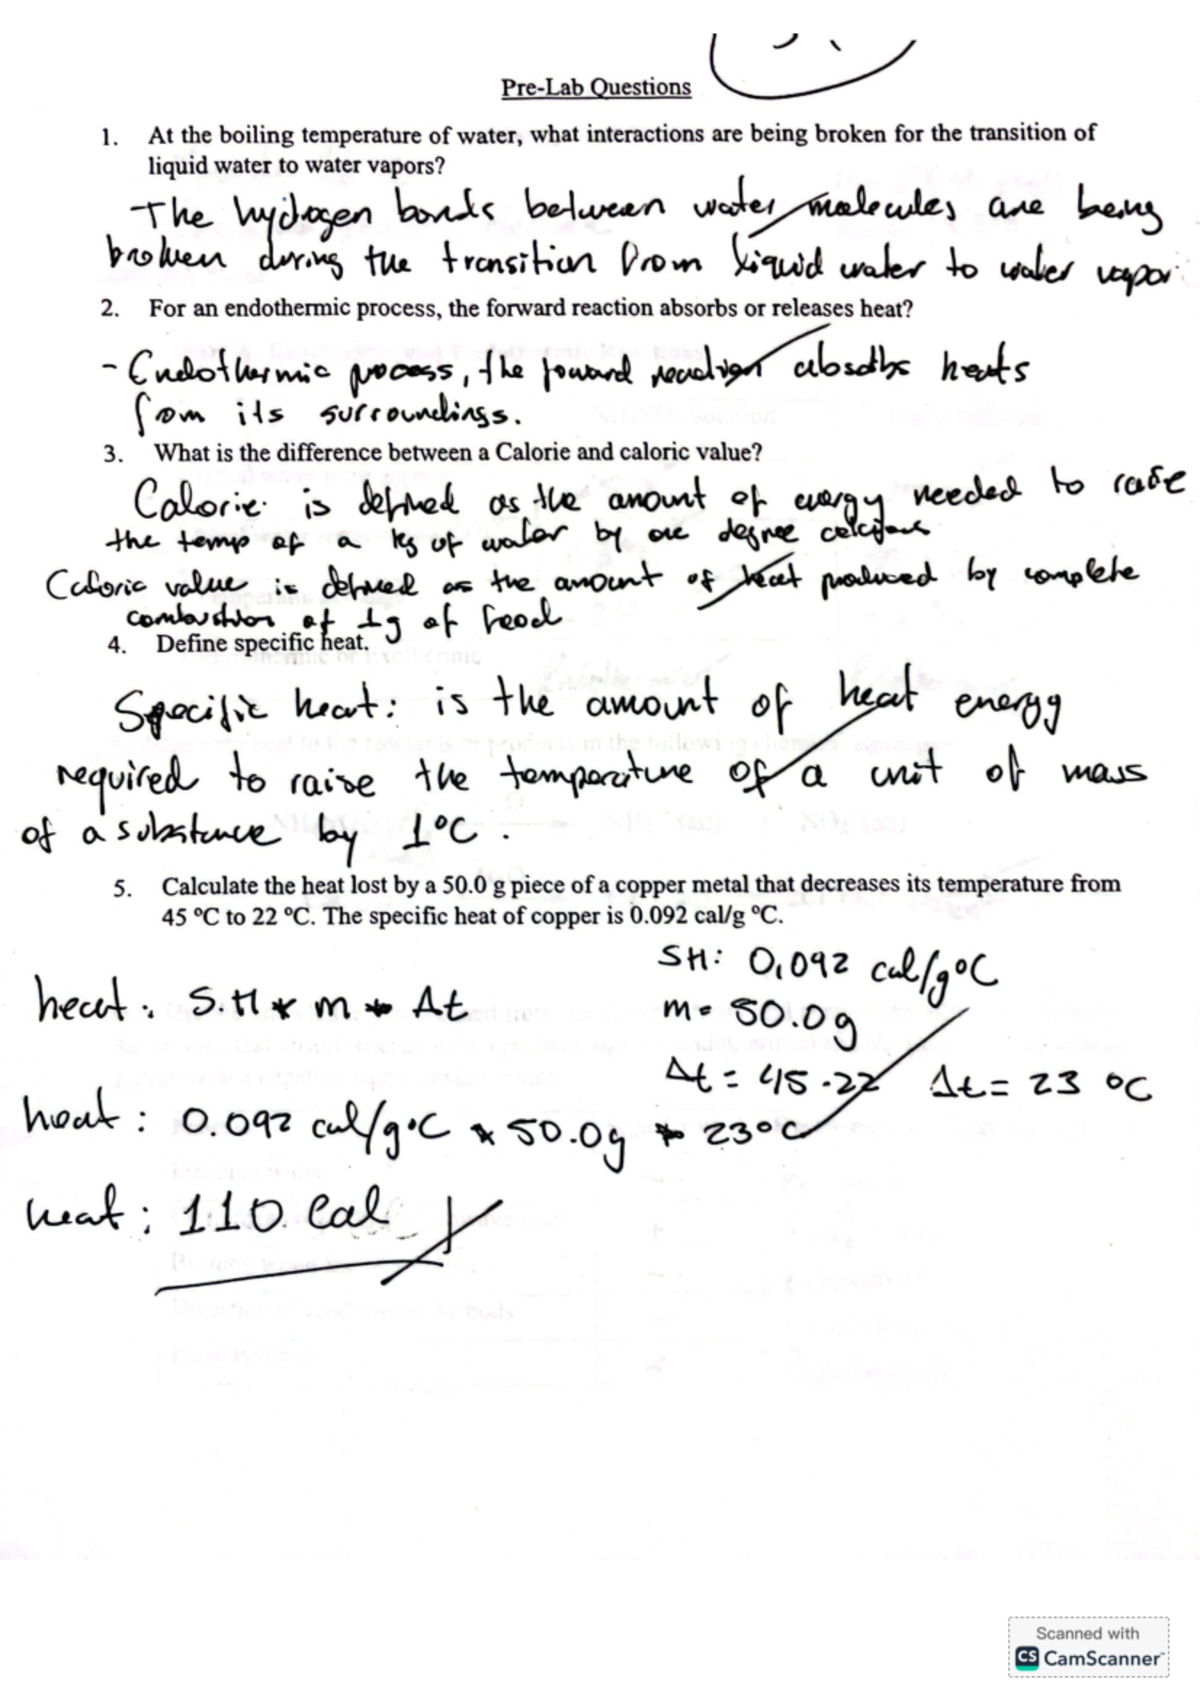 Pre-Lab Questions
1. At the boiling temperature of water, what interactions are being broken for the transition of
liquid water to water vapors?
The hydrogen bonds between water molecules are being
broken during the transition from liquid water to water vapor
2. For an endothermic process, the forward reaction absorbs or releases heat?
- Endothermic process, the forward reaction absorbs heats
from its surroundings.
3. What is the difference between a Calorie and caloric value?
Calorie: is defined as the amount of energy needed to raise
the temp of a kg of water by one degree celcious
Caloric value is defined as the amount of heat produced by complete
combustion of 1g of food
4. Define specific heat.
Specific heat: is the amount of heat energy
required to raise the temperature of a unit of mass
of a substance by 1°C.
5. Calculate the heat lost by a 50.0 g piece of a copper metal that decreases its temperature from
45 ºC to 22 ºC. The specific heat of copper is 0.092 cal/g ºC.
SH: 0,092 cal/g°C
heat: S.H * m * Δt
m= 50.0g
Δt = 45-22 Δt = 23 °C
heat: 0.092 cal/g°C * 50.0g * 23°C
heat: 110. Cal
Scanned with
CS CamScanner